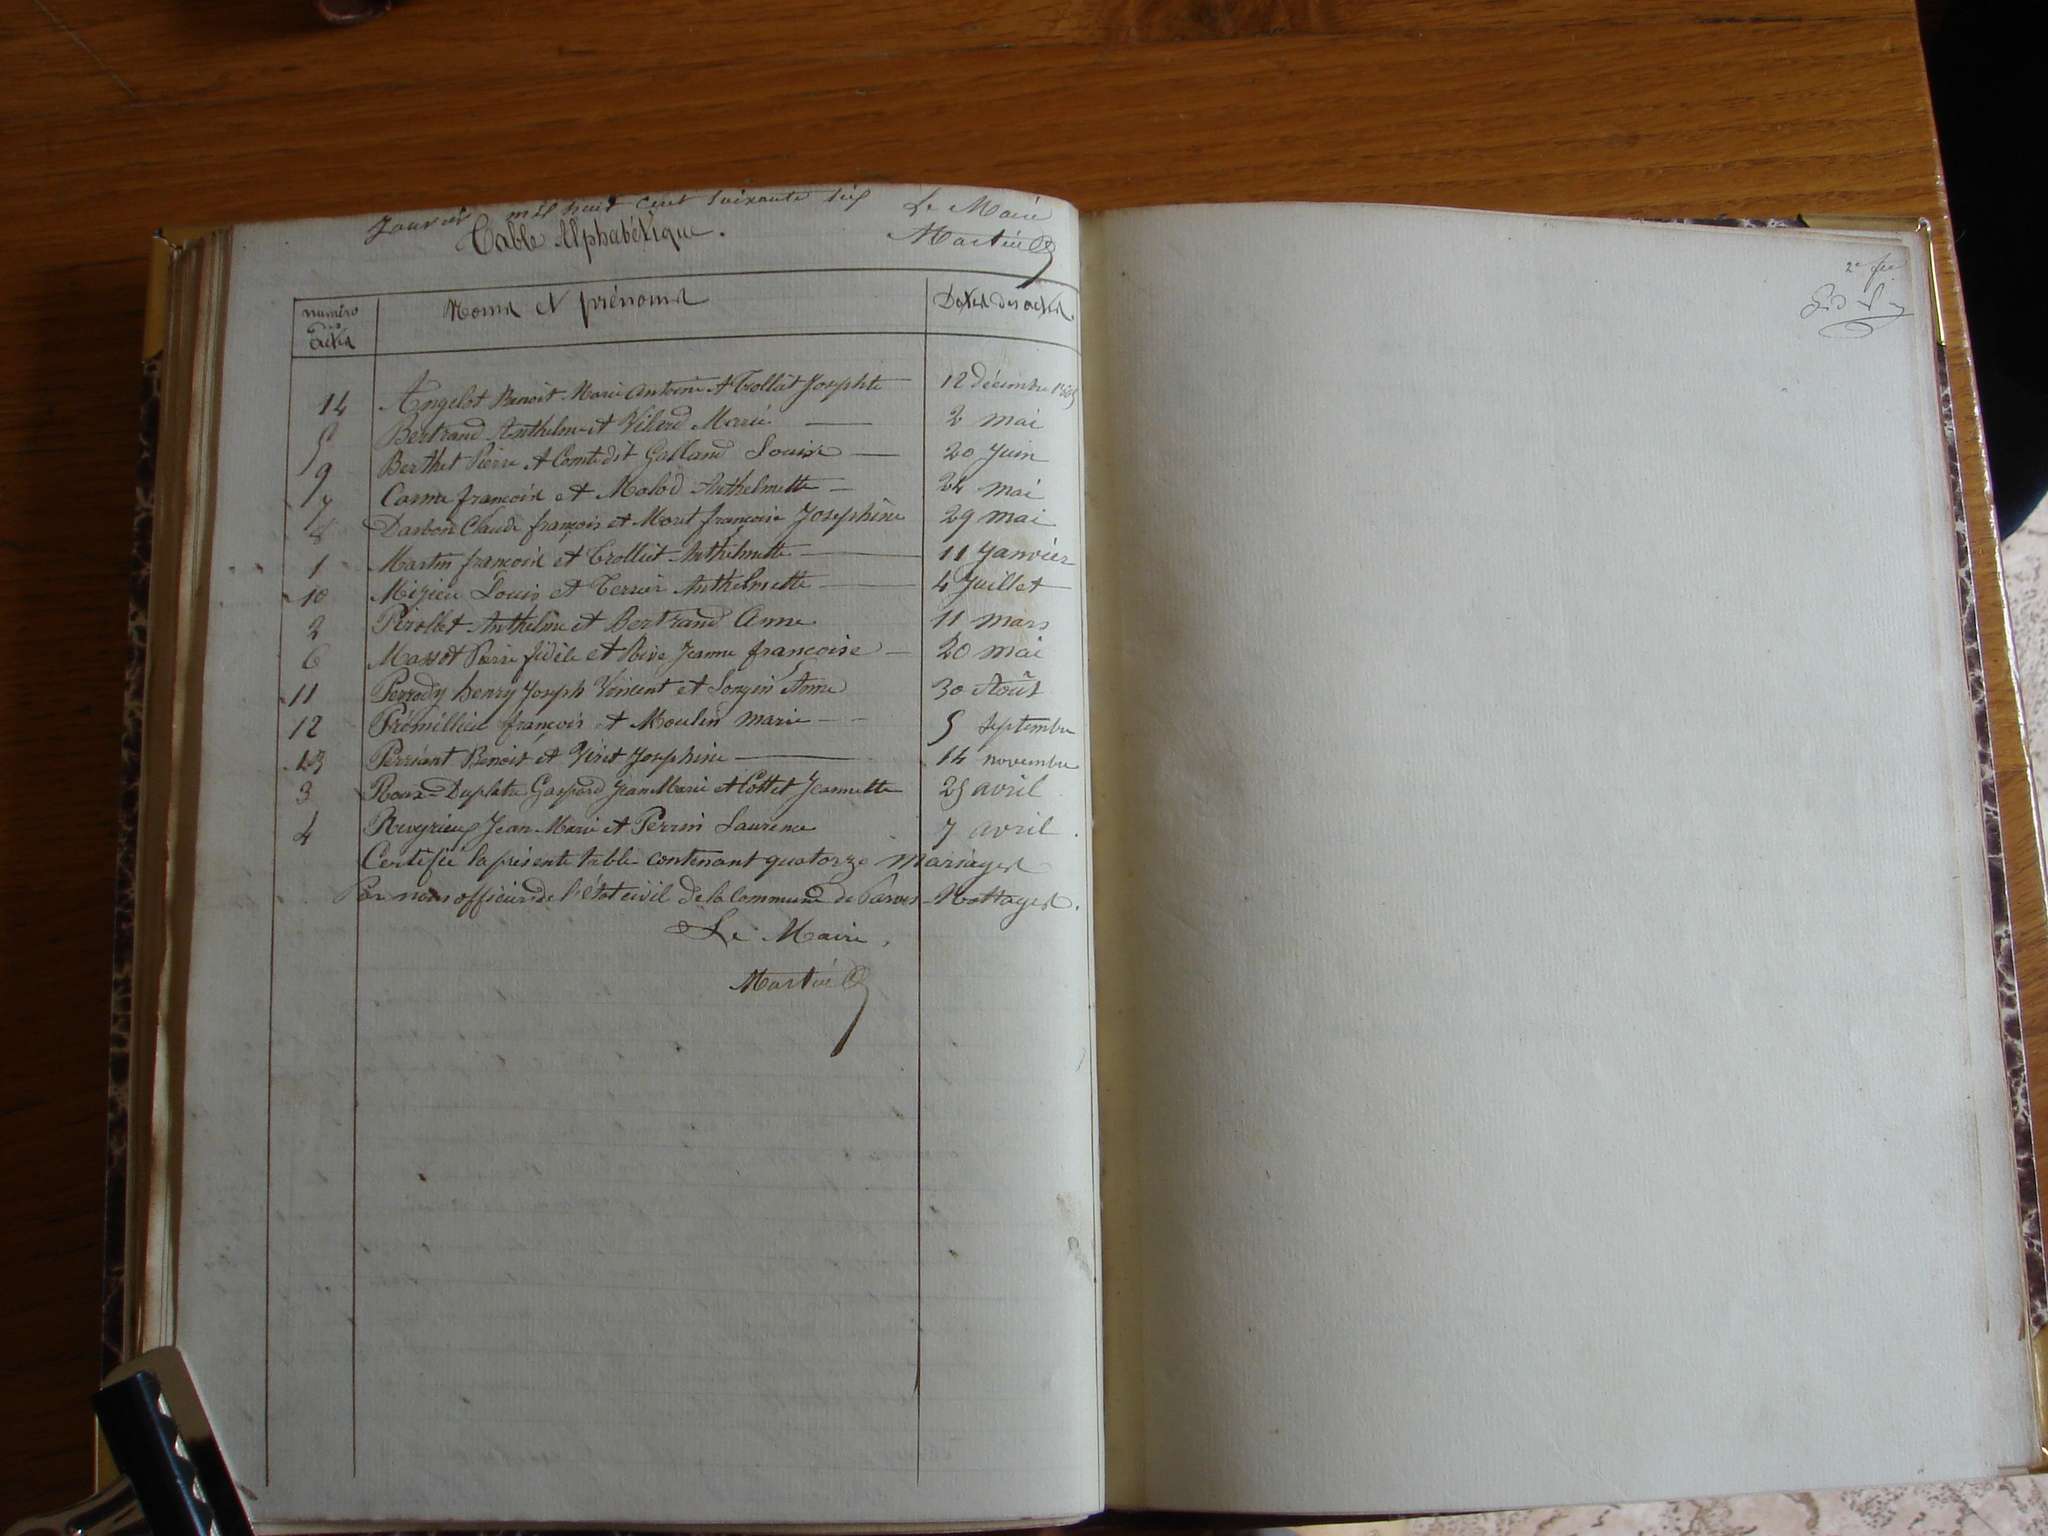 Janvier mil huit cent soixante six Le Maire
Table Alphabétique. Martin
numéro des actes Noms et prénoms Dates des actes.
14 Angelot Benoit Marie Antoine et Trolliet Josephte 12 décembre 1865
5 Bertrand Anthelme et Vilerd Marie 2 mai
9 Berthet Pierre et Comte dit Galland Louise 20 Juin
7 Carme françois et Malod Anthelmette 24 mai
8 Darbon Claude françois et Moret françoise Josephine 29 mai
1 Martin françois et Trolliet Anthelmette 11 Janvier
10 Mizieu Louis et Terrier Anthelmette 4 Juillet
2 Pérollet Anthelme et Bertrand Anne 11 mars
6 Massot Pierre fidèle et Rive Jeanne françoise 20 mai
11 Perrody henry Joseph Vincent et Songin Anne 30 Août
12 Prémillieu françois et Moulin marie 5 Septembre
13 Perriant Benoit et Viret Josephine 14 novembre
3 Roux-Duplatre Gaspard Jean Marie et Cottet Jeannette 25 avril
4 Reveyrieux Jean Marie et Perrin Laurence 7 avril.
Certifié la présente table contenant quatorze mariages
Par nous officier de l'état civil de la Commune de Parves-Nattages.
Le Maire,
Martin
2e